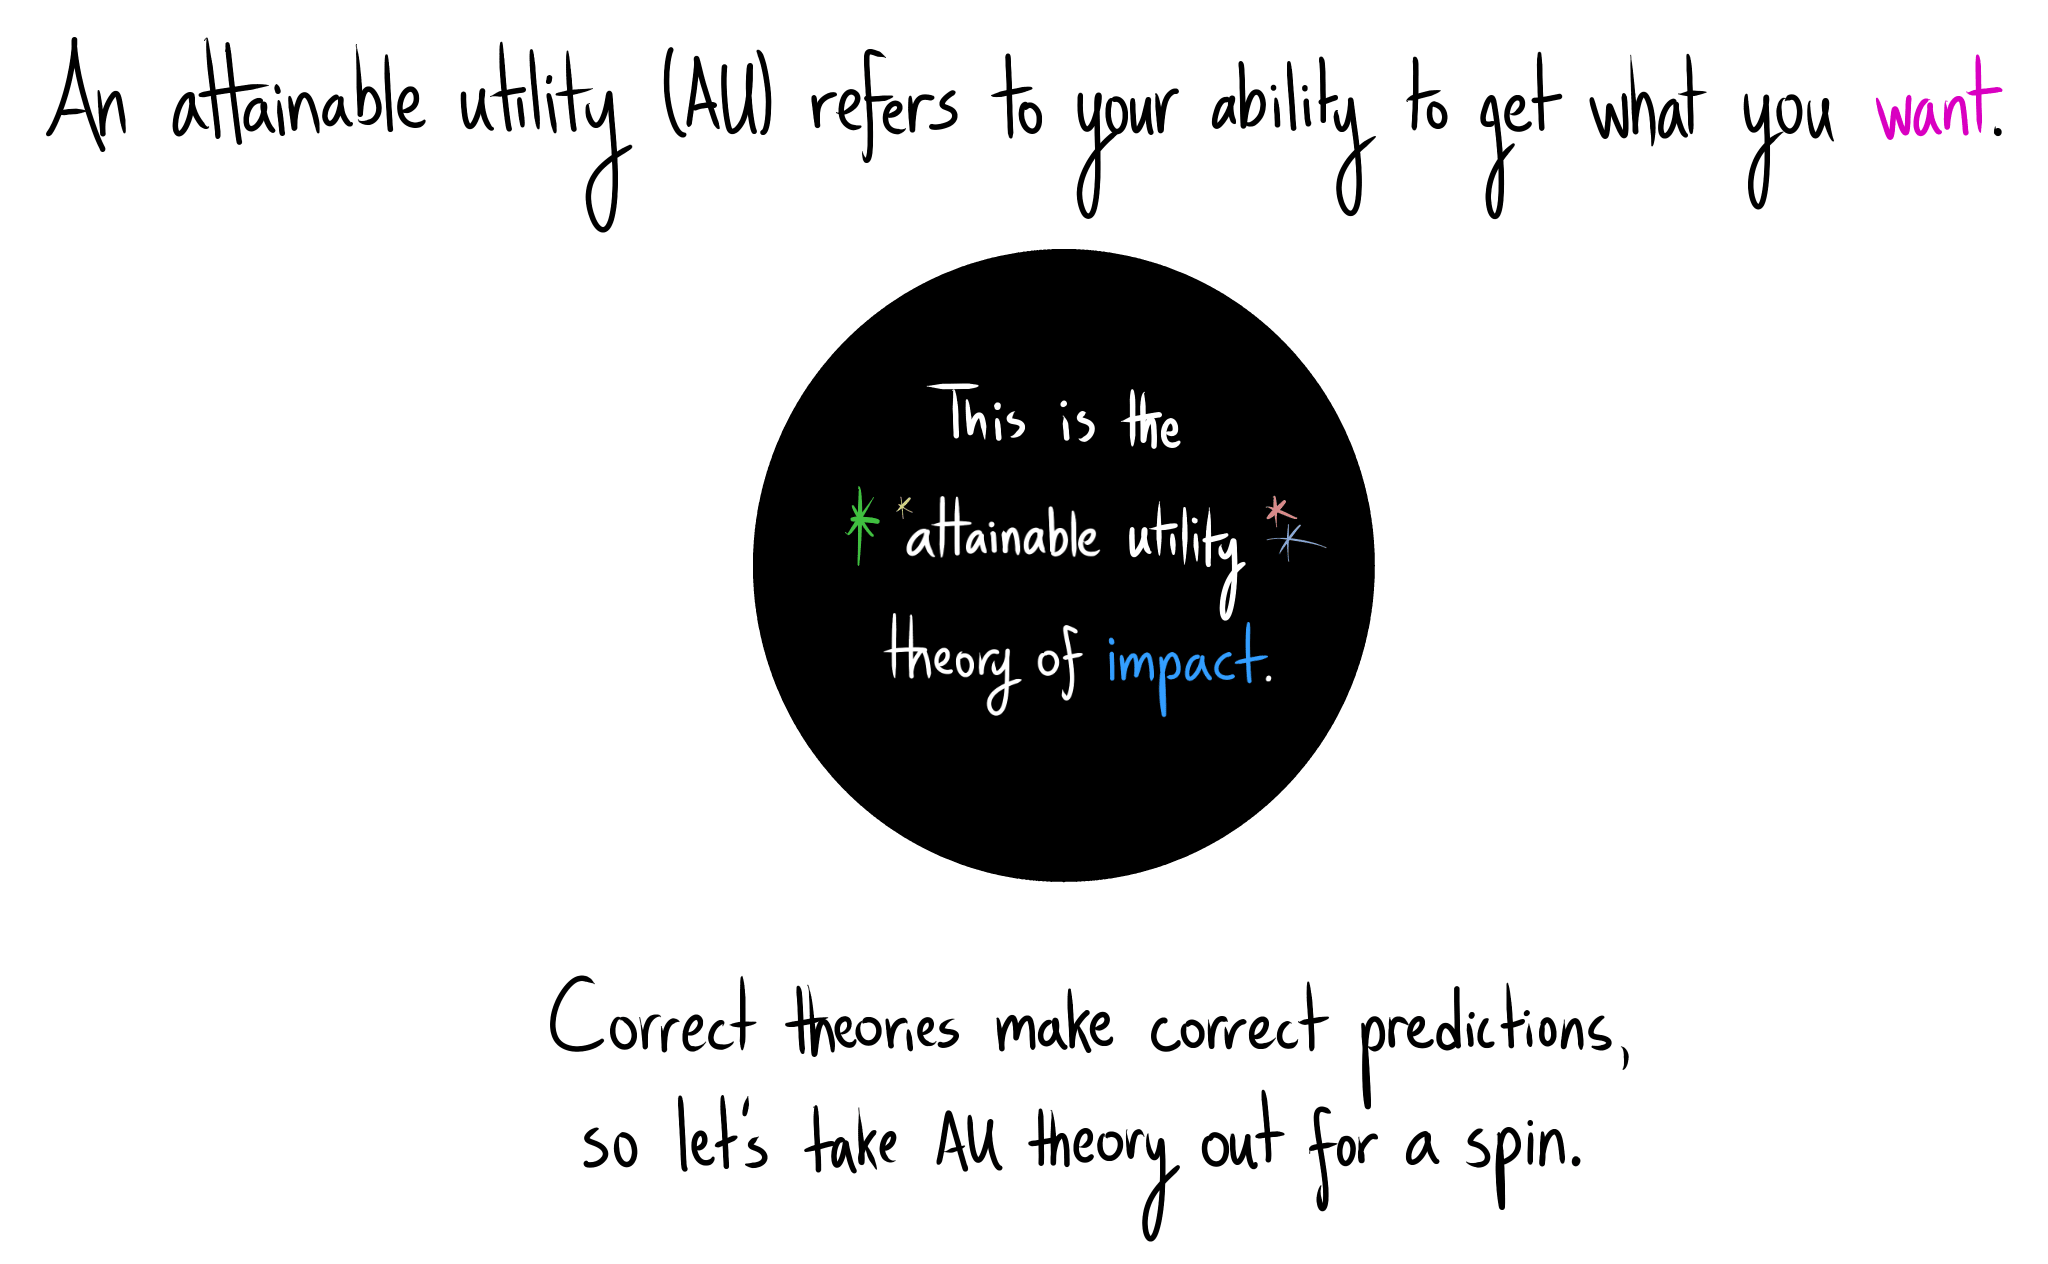 An attainable utility (AU) refers to your ability to get what you want.
This is the
attainable utility
theory of impact.
Correct theories make correct predictions,
so let's take AU theory out for a spin.